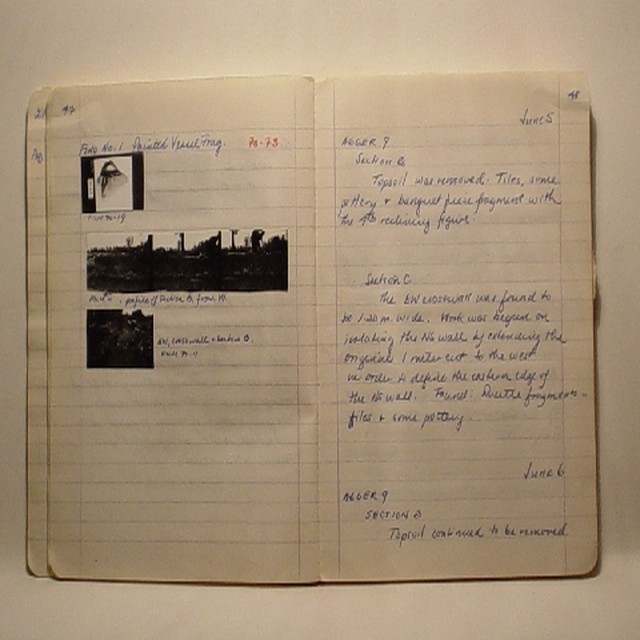 47
Find No. 1 Painted Vessel Frag. 70-73
profile of Section B, from W.
EW crosswall + Section B.
48
June 5
AGGER 9
Section B
Topsoil was removed. Tiles, some
pottery + banquet frieze fragment with
the 4th reclining figure
Section C
The EW crosswall was found to
be 1.20 m. wide. Work was begun on
isolating the NS wall by extending the
original 1 meter cut to the west
in order to define the eastern edge of
the NS wall. Found: fragments -
tiles + some pottery
June 6
AGGER 9
SECTION B
Topsoil continued to be removed.